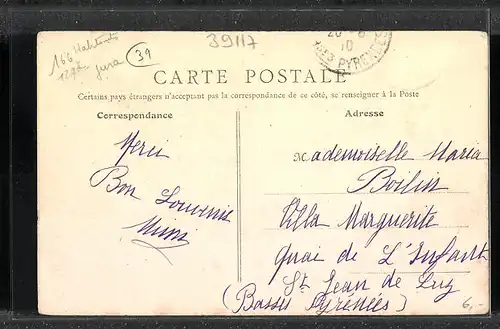 166 Habitants
39
Jura
39117
20 -6
10
PYRENEES
CARTE POSTALE
Certains pays étrangers n'acceptant pas la correspondance de ce côté, se renseigner à la Poste
Correspondance
Adresse
Merci
Bon Souvenir
Mimi
Mademoiselle Maria
Boilin
Villa Marguerite
Quai de L'Infant
St Jean de Luz
(Basses Pyrénées)
6,-